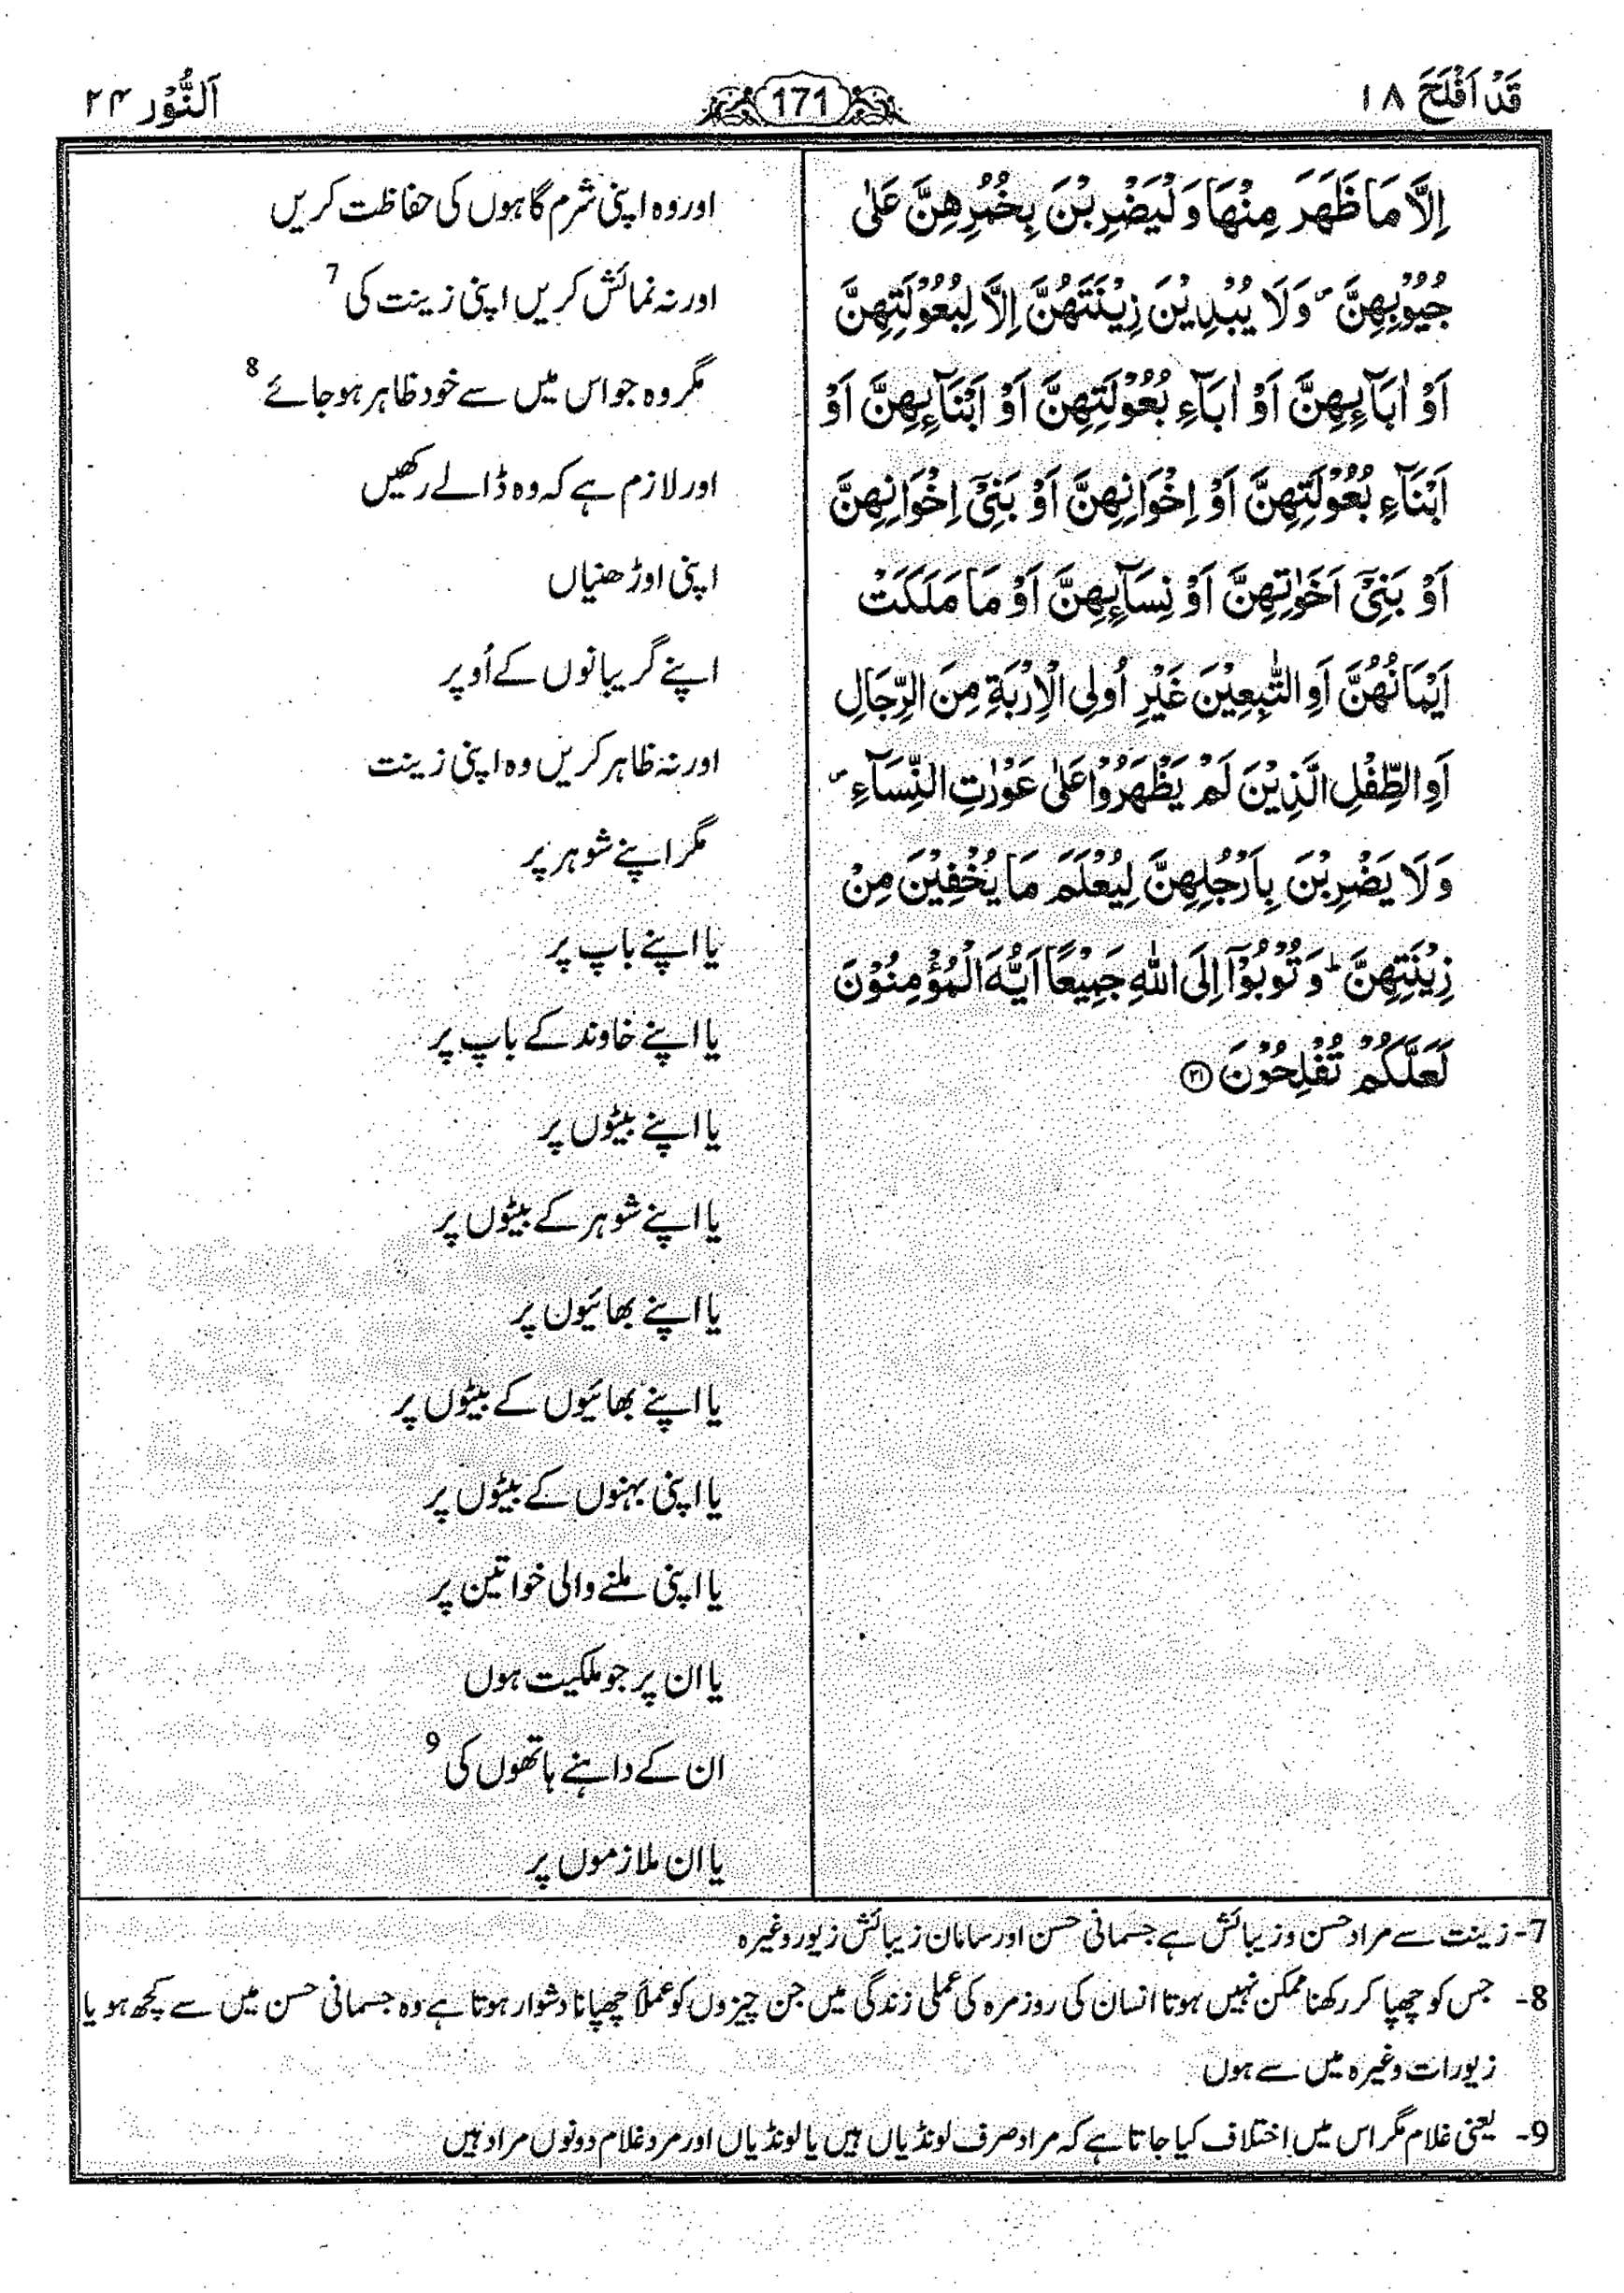 قَدْ اَفْلَحَ ۱۸
171
اَلنُّوْر ۲۴
اِلَّا مَا ظَهَرَ مِنْهَا وَ لْيَضْرِبْنَ بِخُمُرِهِنَّ عَلٰى
جُيُوْبِهِنَّ ۪ وَ لَا يُبْدِيْنَ زِيْنَتَهُنَّ اِلَّا لِبُعُوْلَتِهِنَّ
اَوْ اٰبَآىِٕهِنَّ اَوْ اٰبَآءِ بُعُوْلَتِهِنَّ اَوْ اَبْنَآىِٕهِنَّ اَوْ
اَبْنَآءِ بُعُوْلَتِهِنَّ اَوْ اِخْوَانِهِنَّ اَوْ بَنِيْٓ اِخْوَانِهِنَّ
اَوْ بَنِيْٓ اَخَوٰتِهِنَّ اَوْ نِسَآىِٕهِنَّ اَوْ مَا مَلَكَتْ
اَيْمَانُهُنَّ اَوِ التّٰبِعِيْنَ غَيْرِ اُولِي الْاِرْبَةِ مِنَ الرِّجَالِ
اَوِ الطِّفْلِ الَّذِيْنَ لَمْ يَظْهَرُوْا عَلٰى عَوْرٰتِ النِّسَآءِ ۪
وَ لَا يَضْرِبْنَ بِاَرْجُلِهِنَّ لِيُعْلَمَ مَا يُخْفِيْنَ مِنْ
زِيْنَتِهِنَّ ؕ وَ تُوْبُوْٓا اِلَى اللّٰهِ جَمِيْعًا اَيُّهَ الْمُؤْمِنُوْنَ
لَعَلَّكُمْ تُفْلِحُوْنَ ﴿۳۱﴾
اور وہ اپنی شرم گاہوں کی حفاظت کریں
اور نہ نمائش کریں اپنی زینت کی 7
مگر وہ جو اس میں سے خود ظاہر ہو جائے 8
اور لازم ہے کہ وہ ڈالے رکھیں
اپنی اوڑھنیاں
اپنے گریبانوں کے اُوپر
اور نہ ظاہر کریں وہ اپنی زینت
مگر اپنے شوہر پر
یا اپنے باپ پر
یا اپنے خاوند کے باپ پر
یا اپنے بیٹوں پر
یا اپنے شوہر کے بیٹوں پر
یا اپنے بھائیوں پر
یا اپنے بھائیوں کے بیٹوں پر
یا اپنی بہنوں کے بیٹوں پر
یا اپنی ملنے والی خواتین پر
یا ان پر جو ملکیت ہوں
ان کے داہنے ہاتھوں کی 9
یا ان ملازموں پر
7- زینت سے مراد حسن و زیبائش ہے جسمانی حسن اور سامان زیبائش زیور وغیرہ
8- جس کو چھپا کر رکھنا ممکن نہیں ہوتا انسان کی روزمرہ کی عملی زندگی میں جن چیزوں کو عملاً چھپانا دشوار ہوتا ہے وہ جسمانی حسن میں سے کچھ ہو یا
زیورات وغیرہ میں سے ہوں
9- یعنی غلام مگر اس میں اختلاف کیا جاتا ہے کہ مراد صرف لونڈیاں ہیں یا لونڈیاں اور مرد غلام دونوں مراد ہیں